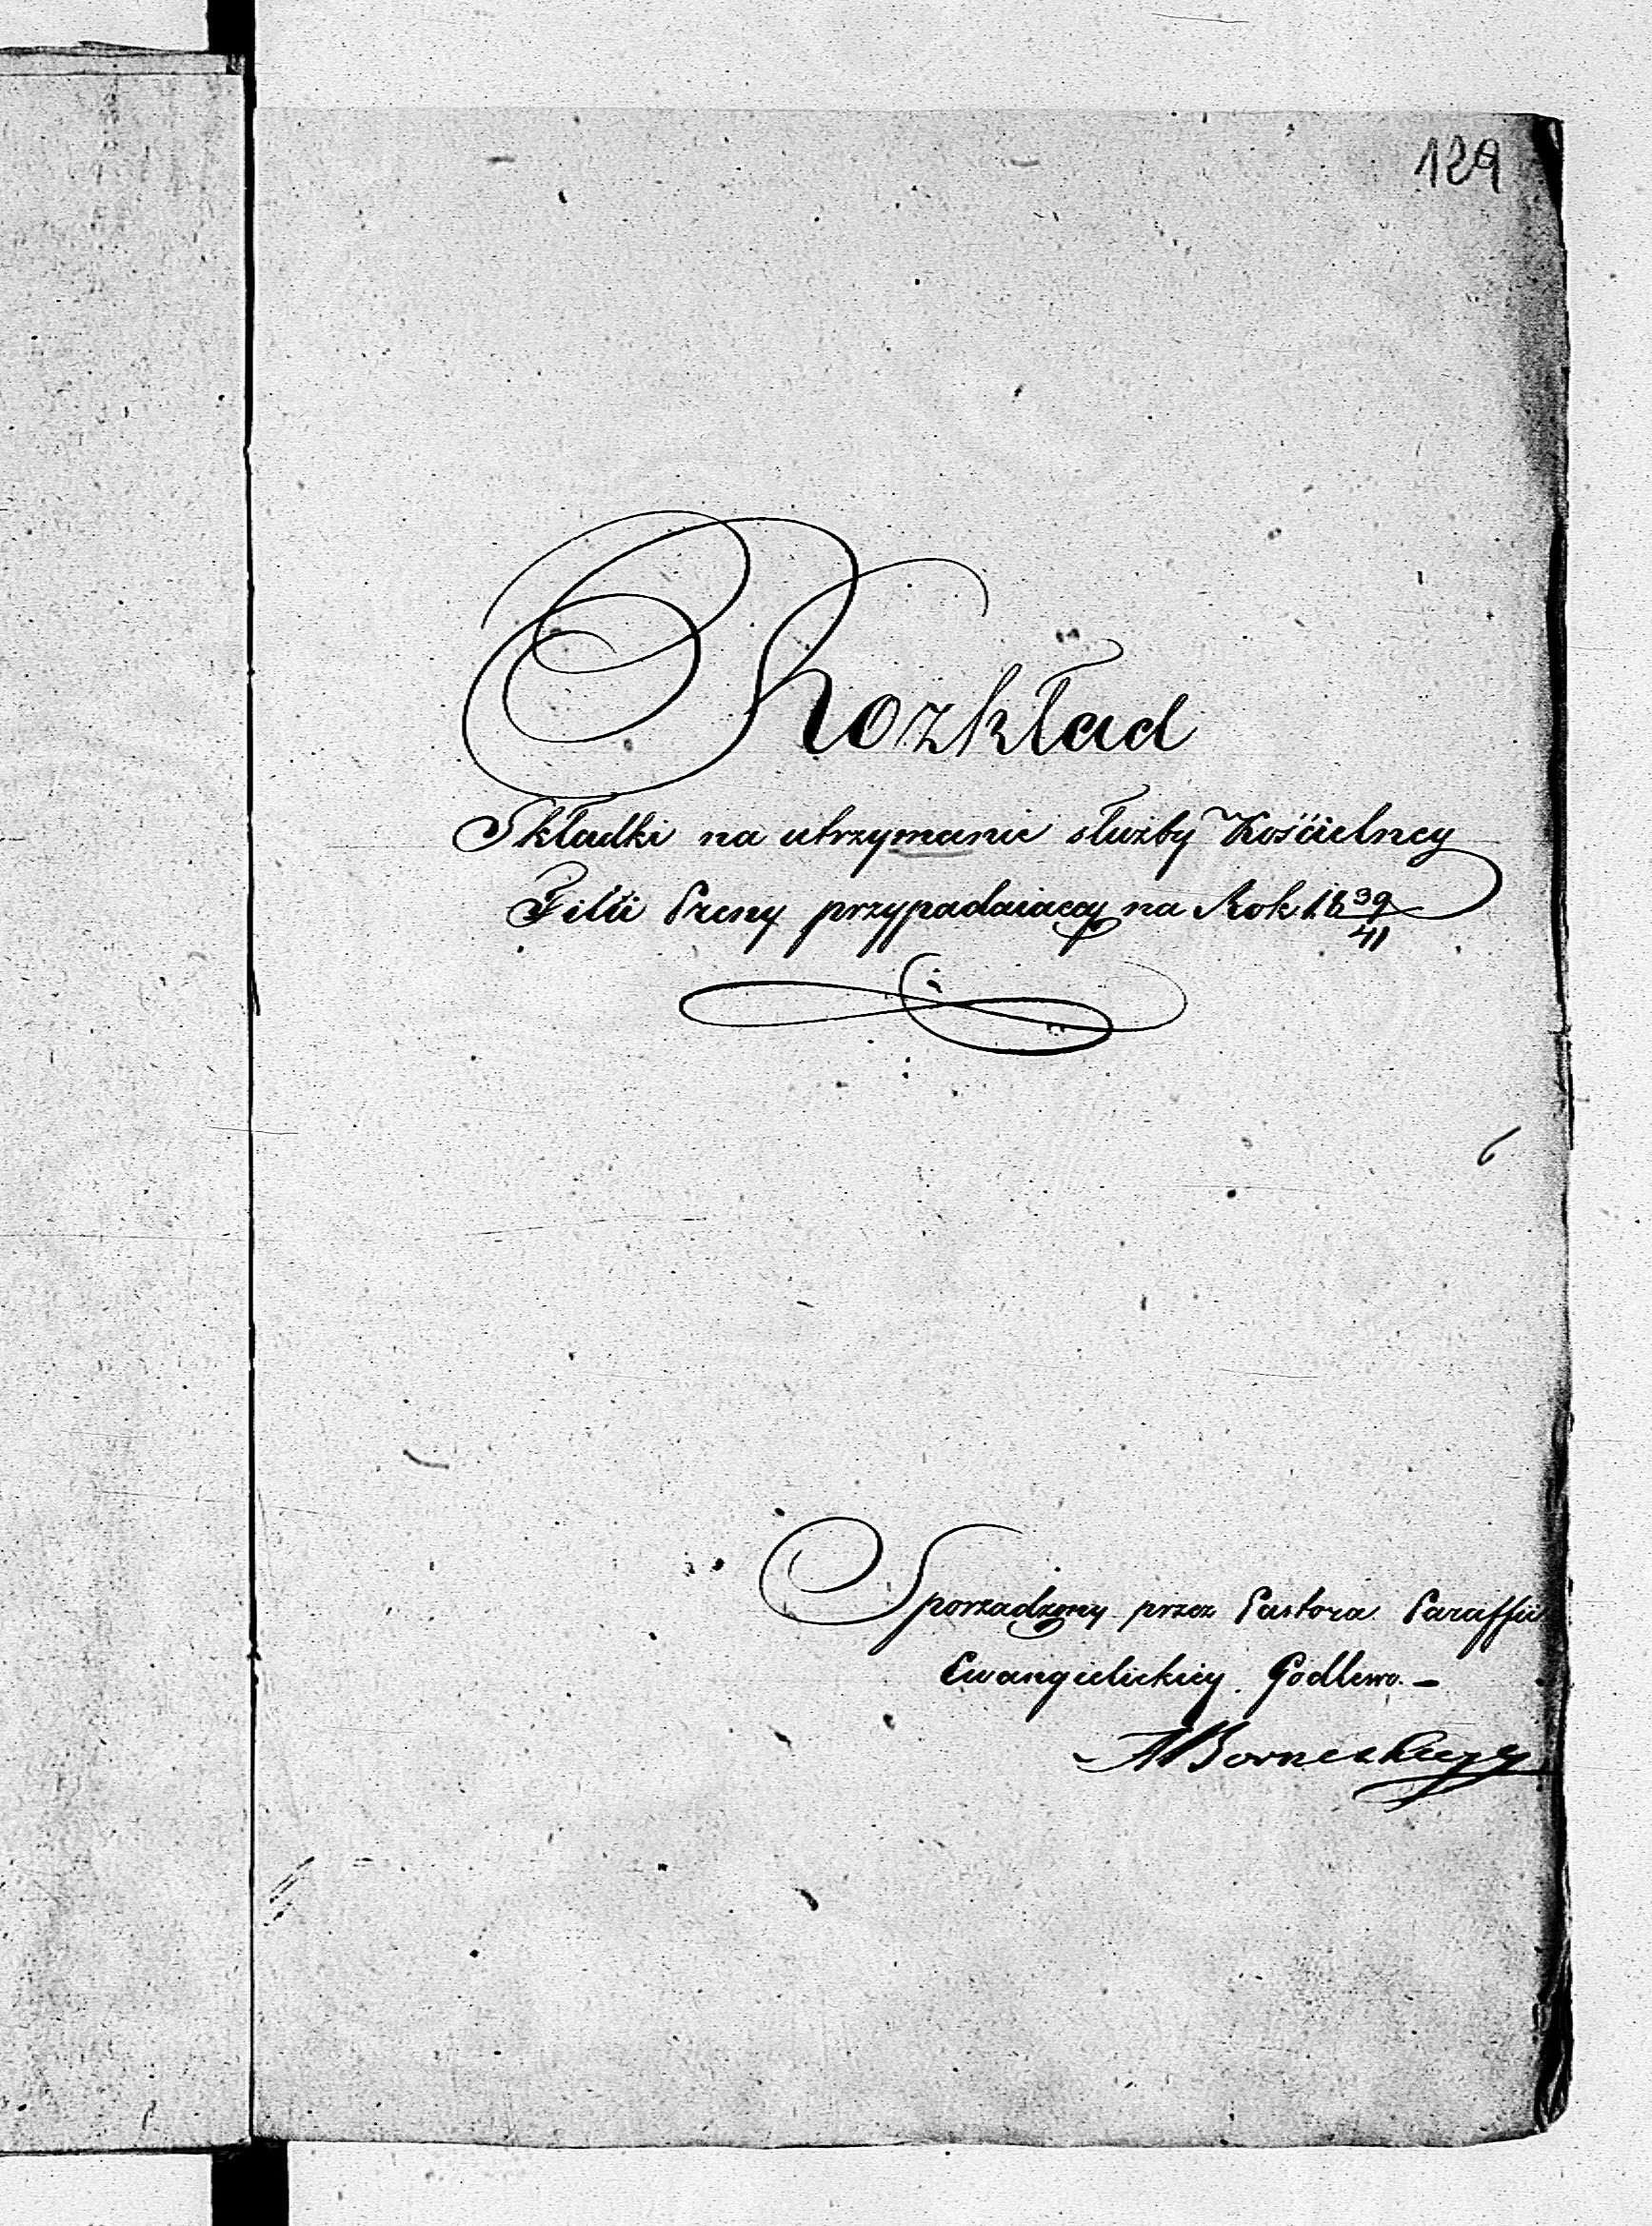 129
Rozkład
Składki na utrzymanie służby Kościelney
Filii Preny przypadaiącey na Rok 18 39/41
Sporządzony przez Pastora Paraffii
Ewangielickiey Godlewo. –